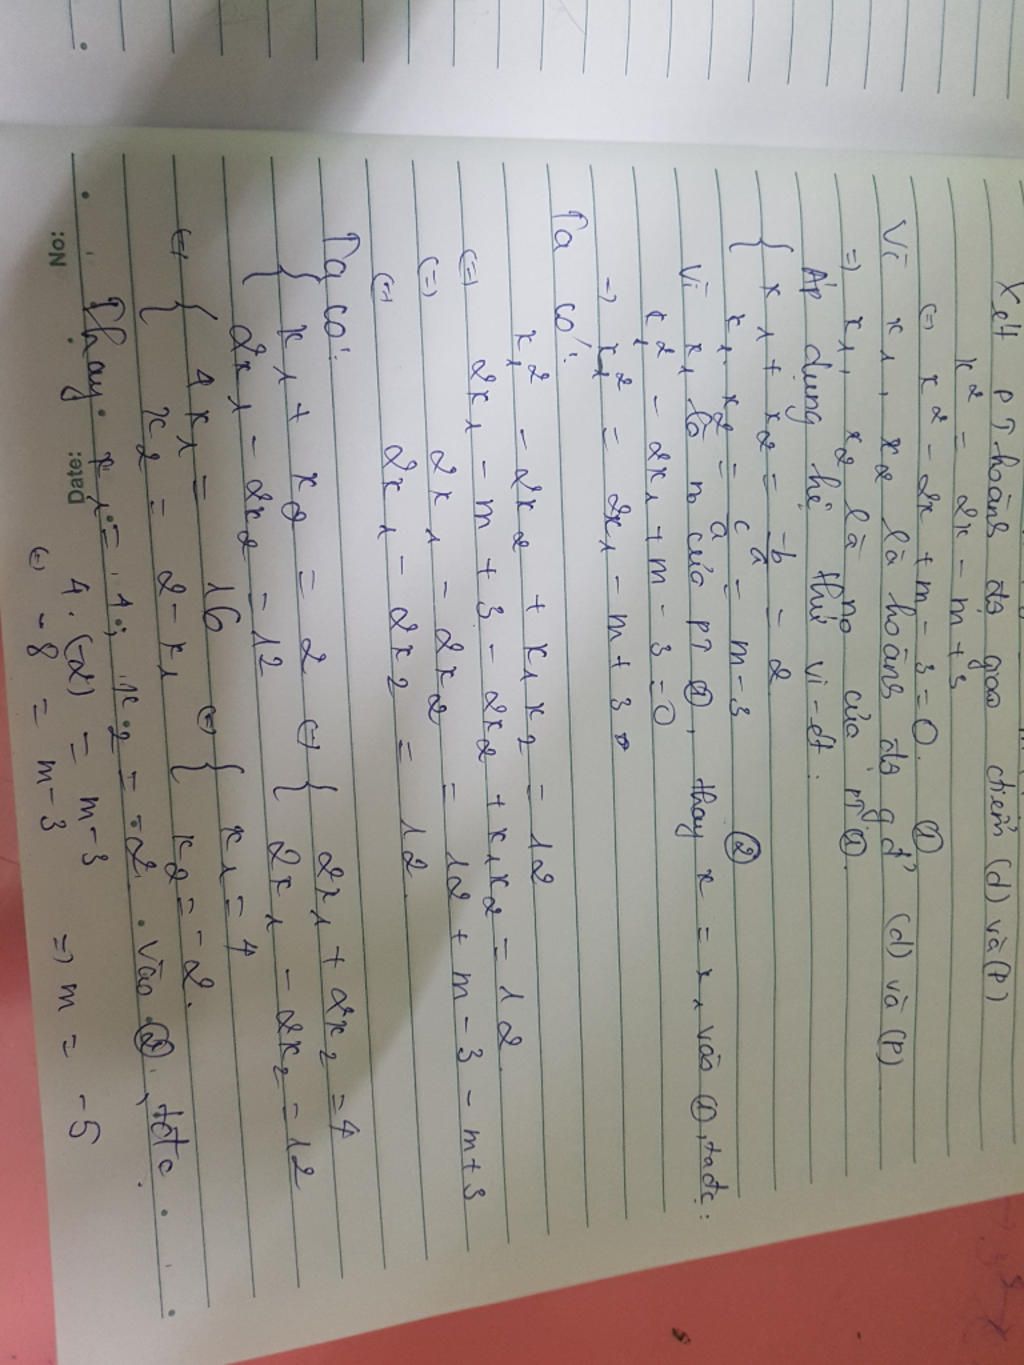 Xét PT hoành độ giao điểm (d) và (P)
x² = 2x - m + 3
(=) x² - 2x + m - 3 = 0. ①
Vì x₁, x₂ là hoành độ gđ' (d) và (P)
=) x₁, x₂ là no của PT ①.
Áp dụng hệ thức vi-ét:
{ x₁ + x₂ = -b/a = 2
x₁. x₂ = c/a = m - 3 ②
Vì x₁ là no của PT ①, thay x = x₁ vào ①, ta đc:
x₁² - 2x₁ + m - 3 = 0
=) x₁² = 2x₁ - m + 3
Ta có:
x₁² - 2x₂ + x₁x₂ = 12
(=) 2x₁ - m + 3 - 2x₂ + x₁x₂ = 12.
(=) 2x₁ - 2x₂ = 12 + m - 3 - m + 3
(=) 2x₁ - 2x₂ = 12.
Ta có:
{ x₁ + x₂ = 2 (=) { 2x₁ + 2x₂ = 4
2x₁ - 2x₂ = 12 2x₁ - 2x₂ = 12
(=) { 4x₁ = 16 (=) { x₁ = 4
x₂ = 2 - x₁ x₂ = -2.
Thay x₁ = 4; x₂ = -2 vào ②, ta đc
No: Date:
4. (-2) = m - 3
(=) -8 = m - 3 =) m = -5